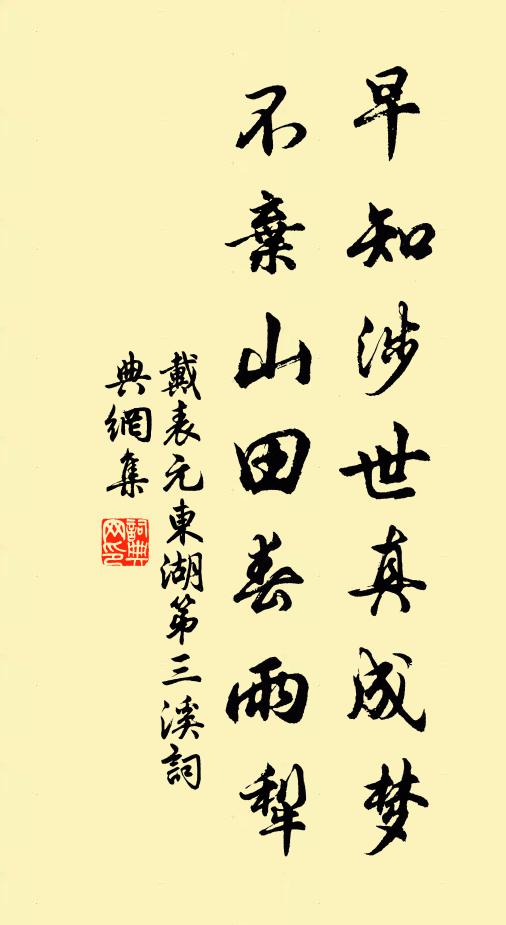 早知涉世真成梦
不棄山田春雨犁
戴表元東湖第三溪詞
典網集
詞典网印